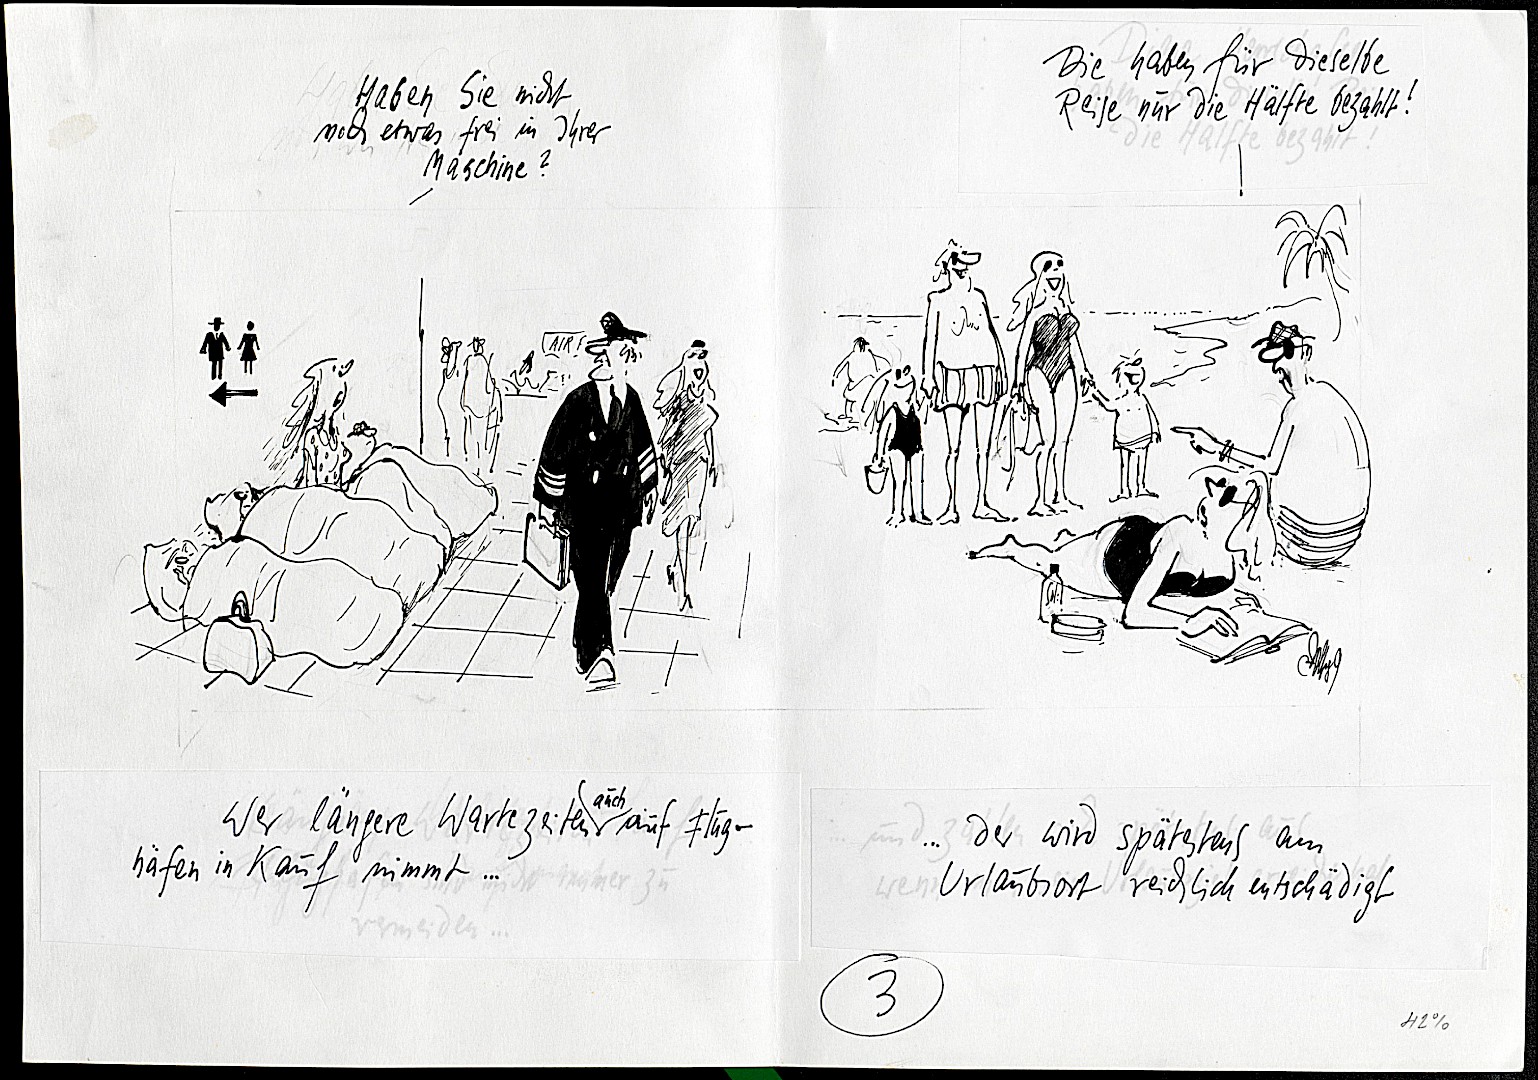 Haben Sie nicht
noch etwas frei in Ihrer
Maschine?
Die haben für dieselbe
Reise nur die Hälfte bezahlt!
die Hälfte bezahlt!
AIR F
Wer längere Wartezeiten auch auf Flug-
häfen in Kauf nimmt ...
vermeiden ...
... der wird spätestens am
Urlaubsort reichlich entschädigt
3
42%